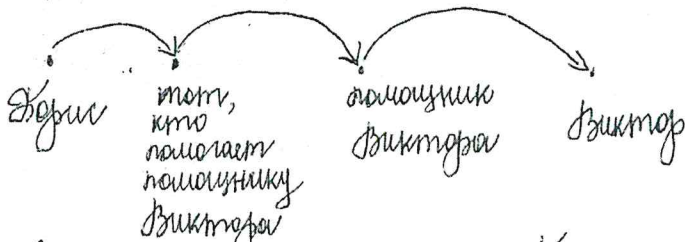 Борис
тот,
кто
помогает
помощнику
Виктора
помощник
Виктора
Виктор